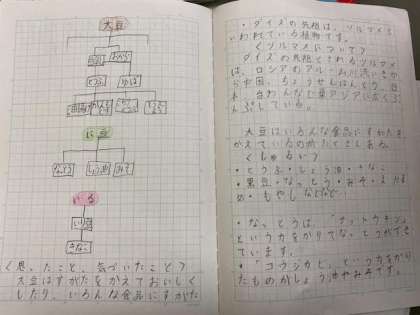 大豆
とうふ
ゆば
に豆
なっとう
しょうゆ
みそ
いる
いり豆
きなこ
〈思ったこと、気づいたこと〉
大豆はすがたをかえておいしく
したり、いろんな食品にすがた
・ダイズの先祖は、ツルマメと
いわれている植物です。
〈ツルマメについて〉
ダイズの先祖とされるツルマメ
は、ロシアのアムール川流いきから
中国、ちょうせんはんとう、日
本、台わんなど東アジアに広くぶ
んぷしている。
大豆はいろんな食品にすがたを
かえているのがたくさんある。
〈しゅるい〉
・とうふ・しょう油・きなこ
・黒豆・なっとう・みそ・えだま
め・もやしなどなど
・なっとうは、「ナットウキン」
という力をかりてなっとうができ
ています。
・「コウジカビ」という力をかり
たものがしょう油やみそです。